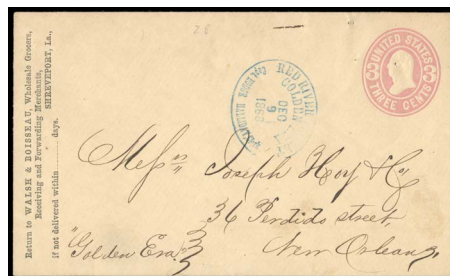 Return to WALSH & BOISSEAU, Wholesale Grocers,
Receiving and Forwarding Merchants,
SHREVEPORT, La.,
If not delivered within ........ days.
28
RED RIVER
GOLDEN
DEC
9
1868
UNITED STATES
THREE CENTS
3 3
Messrs
Joseph Hoy & Co
36 Perdido street,
New Orleans,
"Golden Era"